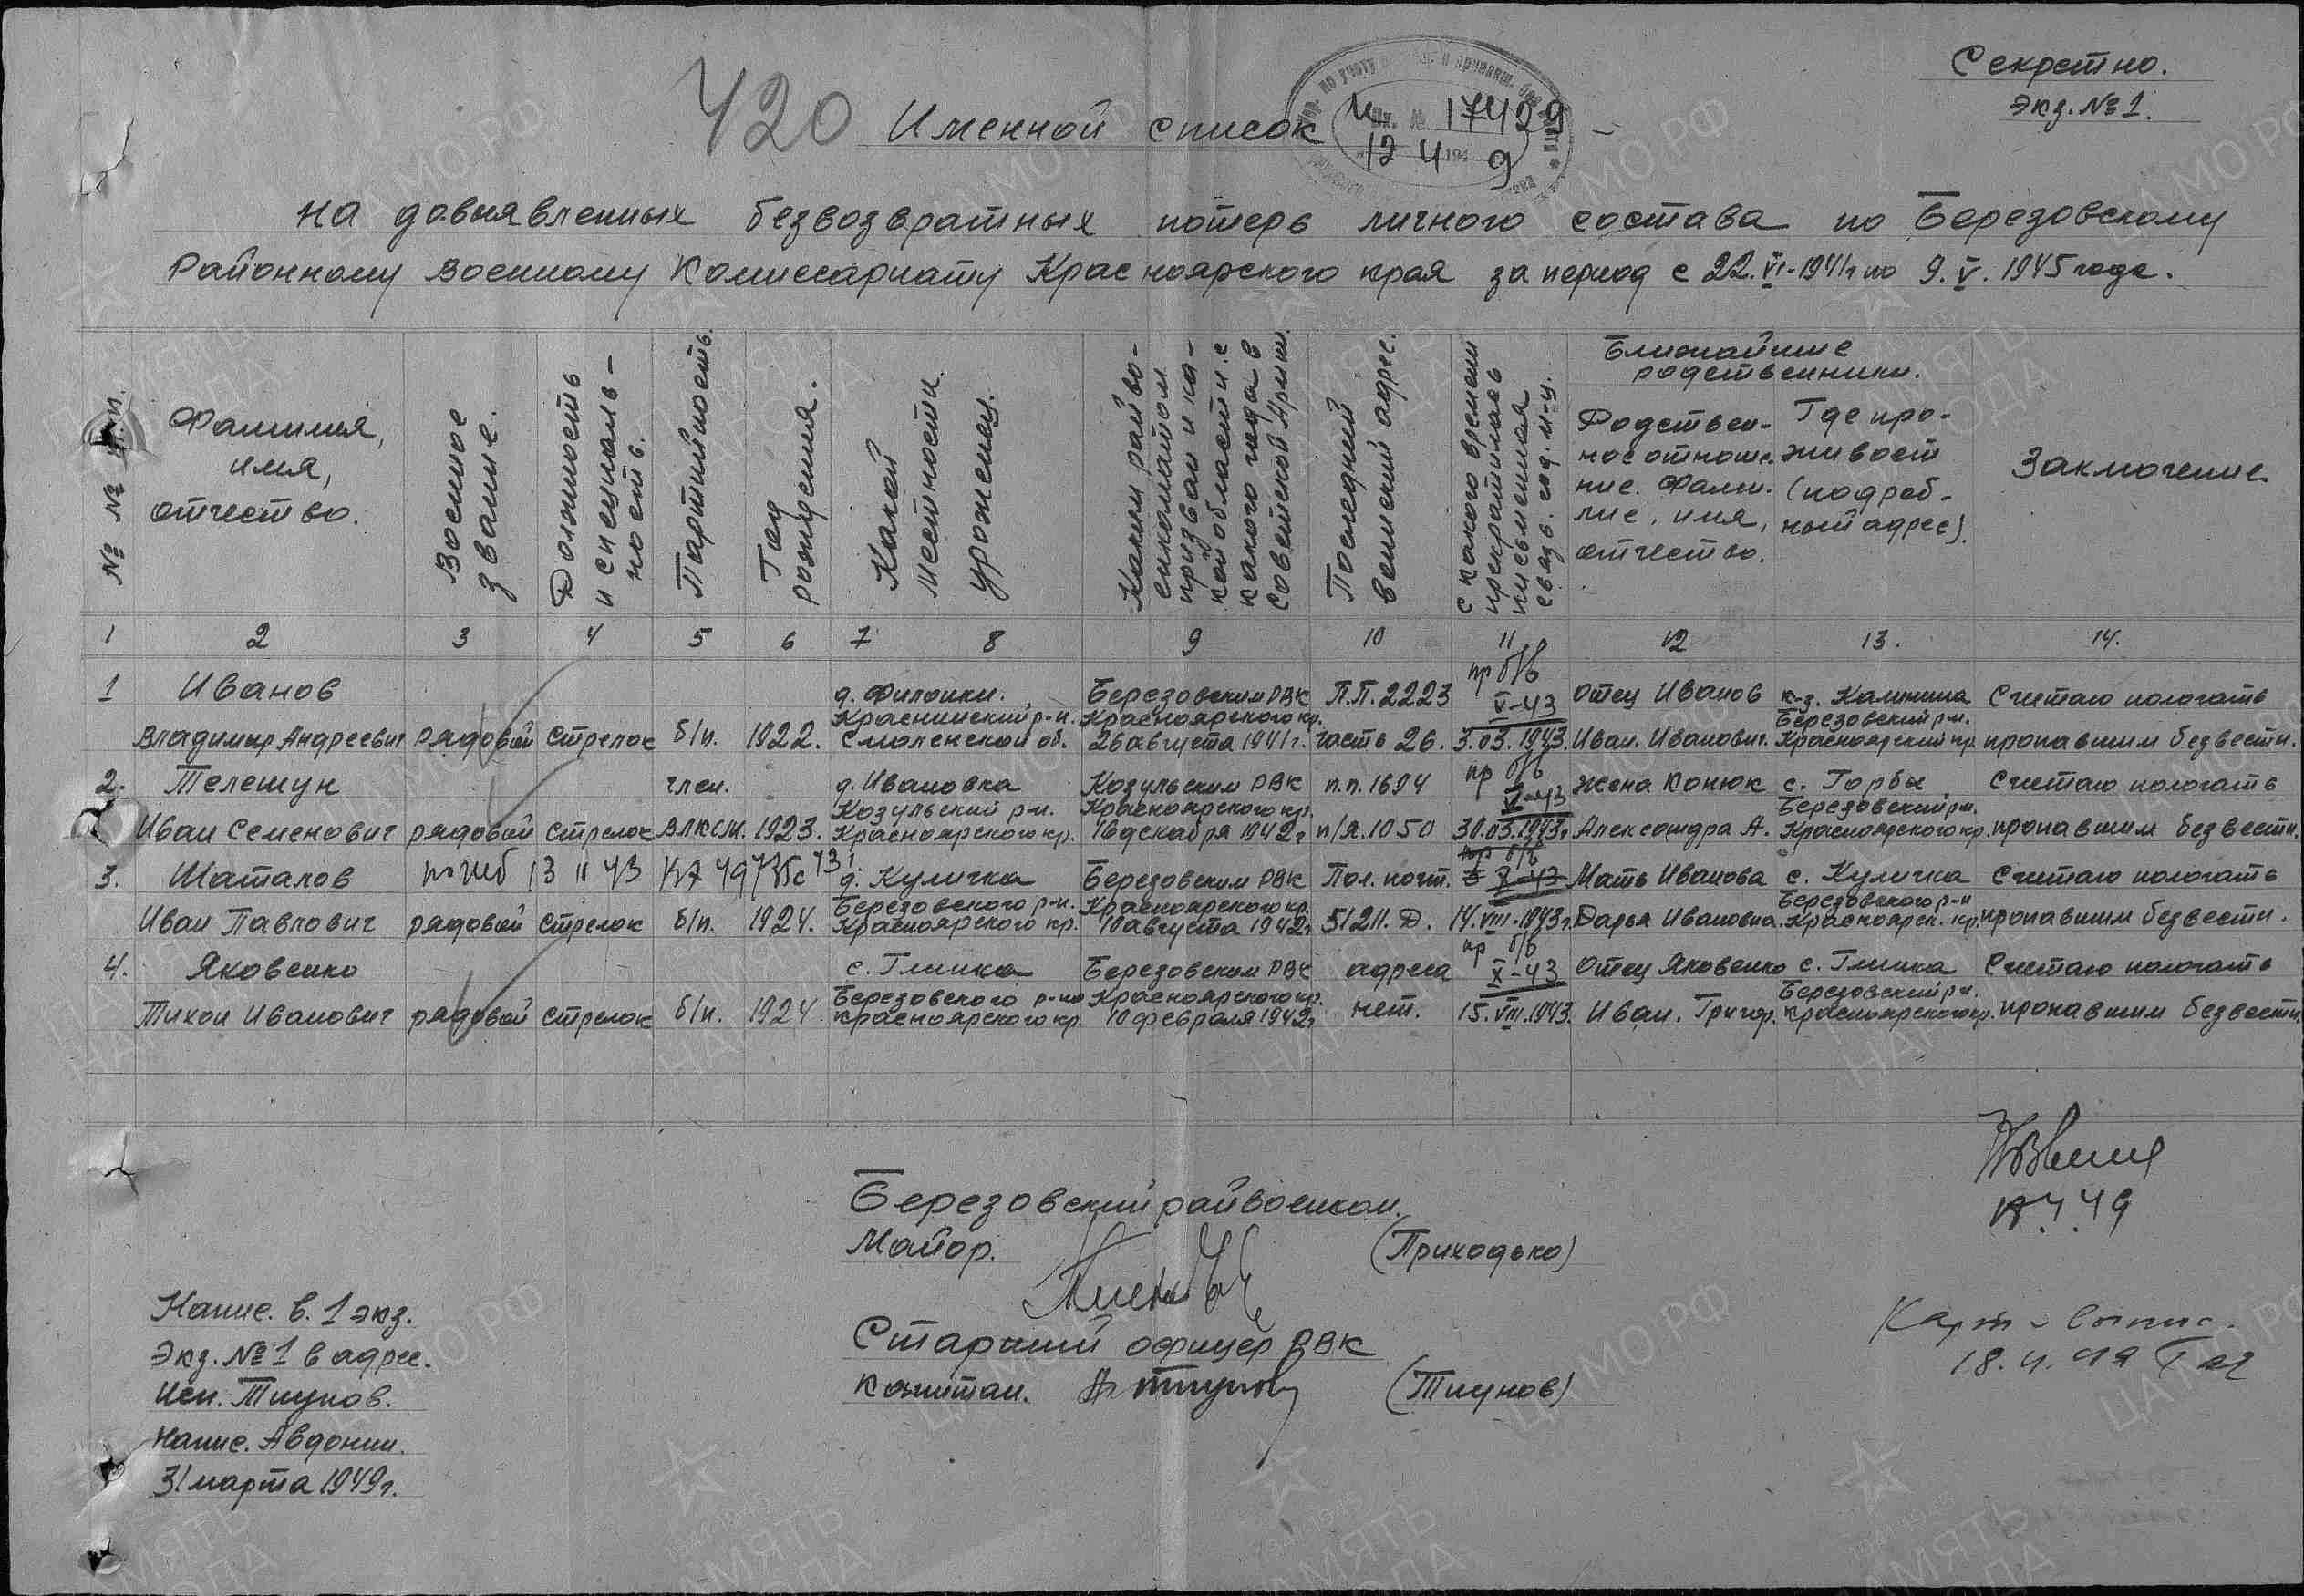 Секретно.
Экз. №1.
420 Именной список
Вх. № 17429
12 4 1949
на довыявленных безвозвратных потерь личного состава по Березовскому
Районному Военному Комиссариату Красноярского края за период с 22.VI-1941г по 9.V.1945 года.
№ № п.п.
Фамилия,
имя,
отчество.
Военное
звание.
Должность
и специаль-
ность.
Партийность.
Год
рождения.
Какой
местности
уроженец.
Каким райво-
енкоматом
призван и ка-
кой области. с
какого года в
Советской Армии.
Последний
воинский адрес.
с какого времени
прекратилась
письменная
связь. год. м-ц.
Ближайшие
родственники.
Родствен-
ное отноше-
ние. Фами-
лие, имя,
отчество.
Где про-
живает
(подроб-
ный адрес).
Заключение
1 2 3 4 5 6 7 8 9 10 11 12 13. 14.
пр б/в
1 Иванов д. Филонки. Березовским РВК П.П. 2223 V-43 Отец Иванов к-з. Калинина Считаю пологать
Краснинский р-н. Красноярского кр. Березовский р-н.
Владимир Андреевич рядовой стрелок б/п. 1922. Смоленской об. 26 августа 1941г. часть 26. 3.03.1943. Иван. Иванович. Красноярский кр. пропавшим безвести.
пр б/в
2. Телешун член. д. Ивановка Козульским РВК п.п. 1694 V-43 жена Конюк с. Горбы Считаю пологать
Козульский р-н. Красноярского кр. Березовский р-н.
Иван Семенович рядовой стрелок ВЛКСМ. 1923. Красноярского кр. 16 декабря 1942г п/я. 1050 30.03.1943г Александра А. Красноярского кр. пропавшим безвести.
пр б/в
3. Шаталов погиб 13 11 43 д. Куличка Березовским РВК Пол. почт. X-43 Мать Иванова с. Куличка Считаю пологать
Березовского р-н. Красноярского кр. Березовского р-н
Иван Павлович рядовой стрелок б/п. 1924. Красноярского кр. 10 августа 1942г 51211. Д. 14.VIII.1943г. Дарья Ивановна. Красноярск. кр. пропавшим безвести.
пр б/в
4. Яковенко с. Глинка Березовским РВК адреса XI-43 Отец Яковенко с. Глинка Считаю пологать
Березовского р-на Красноярского кр. Березовский р-н.
Тихон Иванович рядовой стрелок б/п. 1924. Красноярского кр. 10 февраля 1942г нет. 15.VIII.1943. Иван. Григор. Красноярского кр. пропавшим безвести.
Березовский райвоенком.
Майор. (Приходько)
Старший офицер РВК
капитан. (Тиунов)
Напис. в. 1 экз.
Экз. №1 в адрес.
Исп. Тиунов.
Напис. Авдонин.
31 марта 1949г.
18.4.49